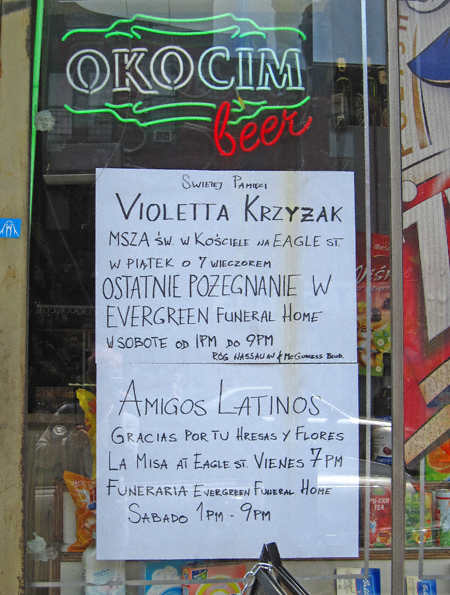 OKOCIM
beer
Swietej Pamięci
VIOLETTA KRZYŻAK
MSZA ŚW. W KOŚCIELE NA EAGLE ST.
W PIĄTEK O 7 WIECZOREM
OSTATNIE POŻEGNANIE W
EVERGREEN FUNERAL HOME
W SOBOTE OD 1PM DO 9PM
RÓG NASSAU AV & MCGUINESS BLVD.
AMIGOS LATINOS
GRACIAS POR TU HRESAS Y FLORES
LA MISA AT EAGLE ST. VIENES 7PM
FUNERARIA EVERGREEN FUNERAL HOME
SABADO 1PM - 9PM
TEA